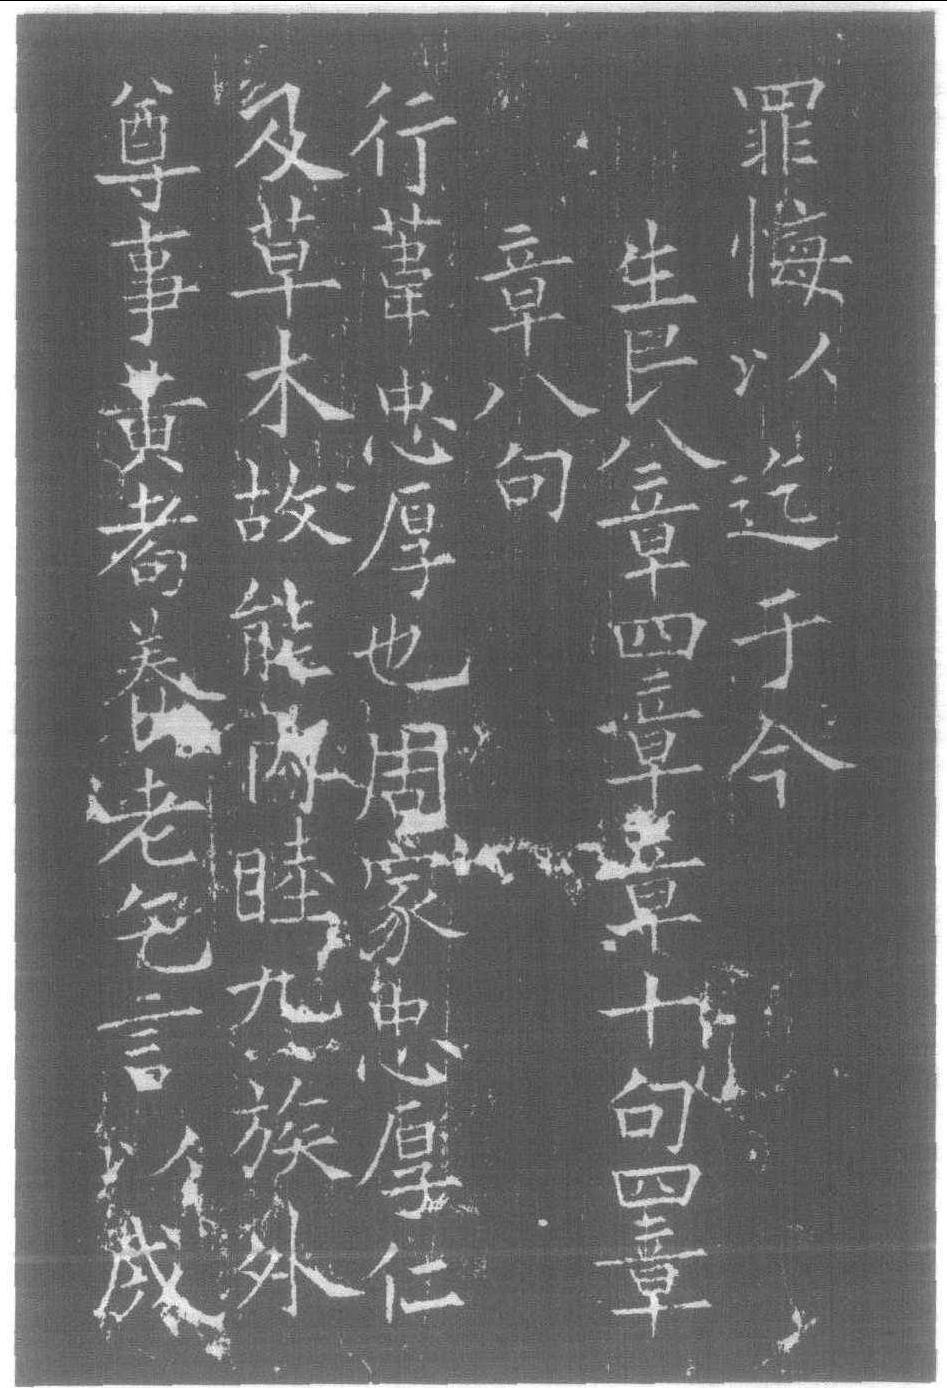 罪悔以迄于今
生民八章四章章十句四章
章八句
行葦忠厚也周家忠厚仁
及草木故能內睦九族外
尊事黃耇養老乞言以成